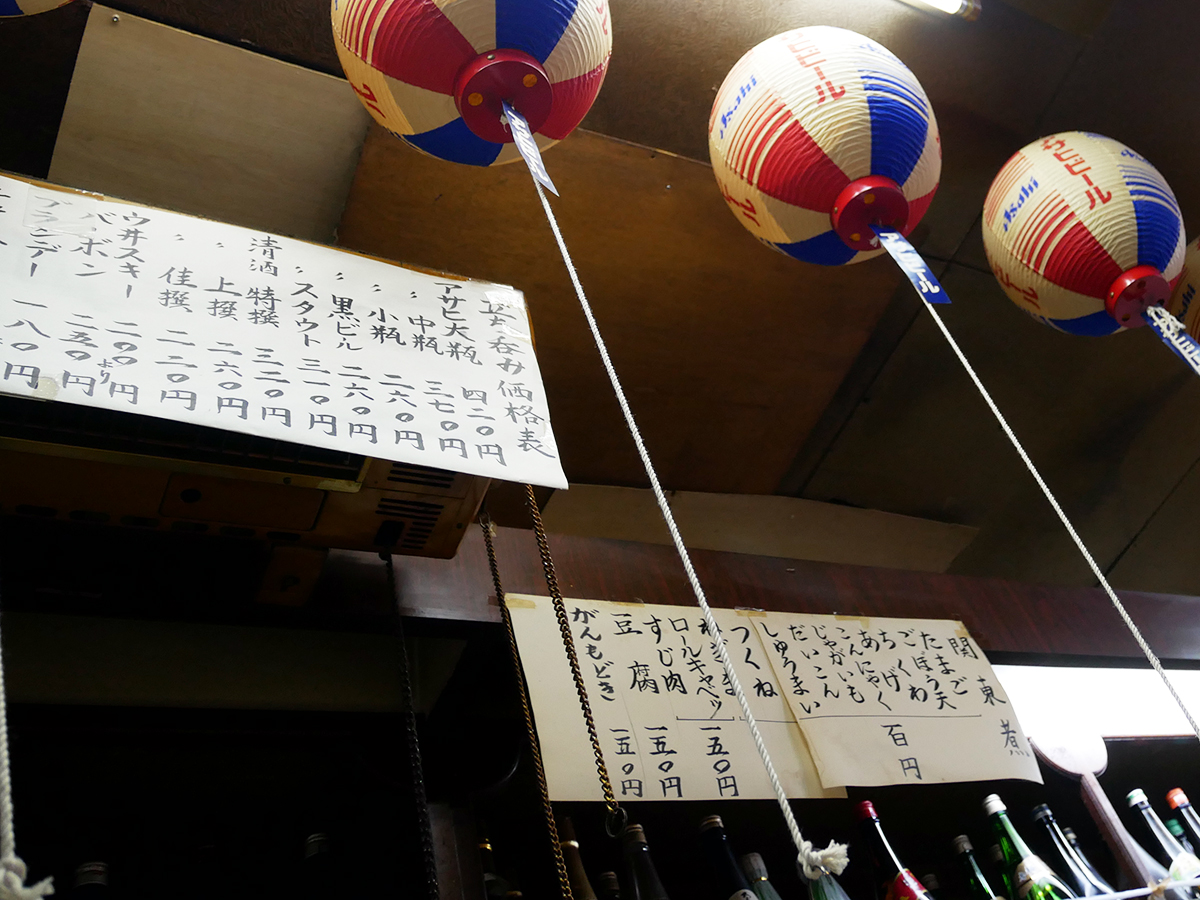 立呑み価格表
アサヒ大瓶 四二〇円
〃 中瓶 三七〇円
〃 小瓶 二六〇円
〃 黒ビール 二六〇円
〃 スタウト 三一〇円
清酒 特撰 三二〇円
〃 上撰 二六〇円
〃 佳撰 二二〇円
ウ井スキー 二〇〇より円
バーボン 二五〇円
ブランデー 一八〇円
Asahi
Asahi
関東煮
たまご
ごぼう天
ちくわ
あげ
こんにゃく
じゃがいも
だいこん
しゅうまい
百円
つくね
ねぎま
ロールキャベツ
すじ肉
一五〇円
豆腐 一五〇円
がんもどき 一五〇円